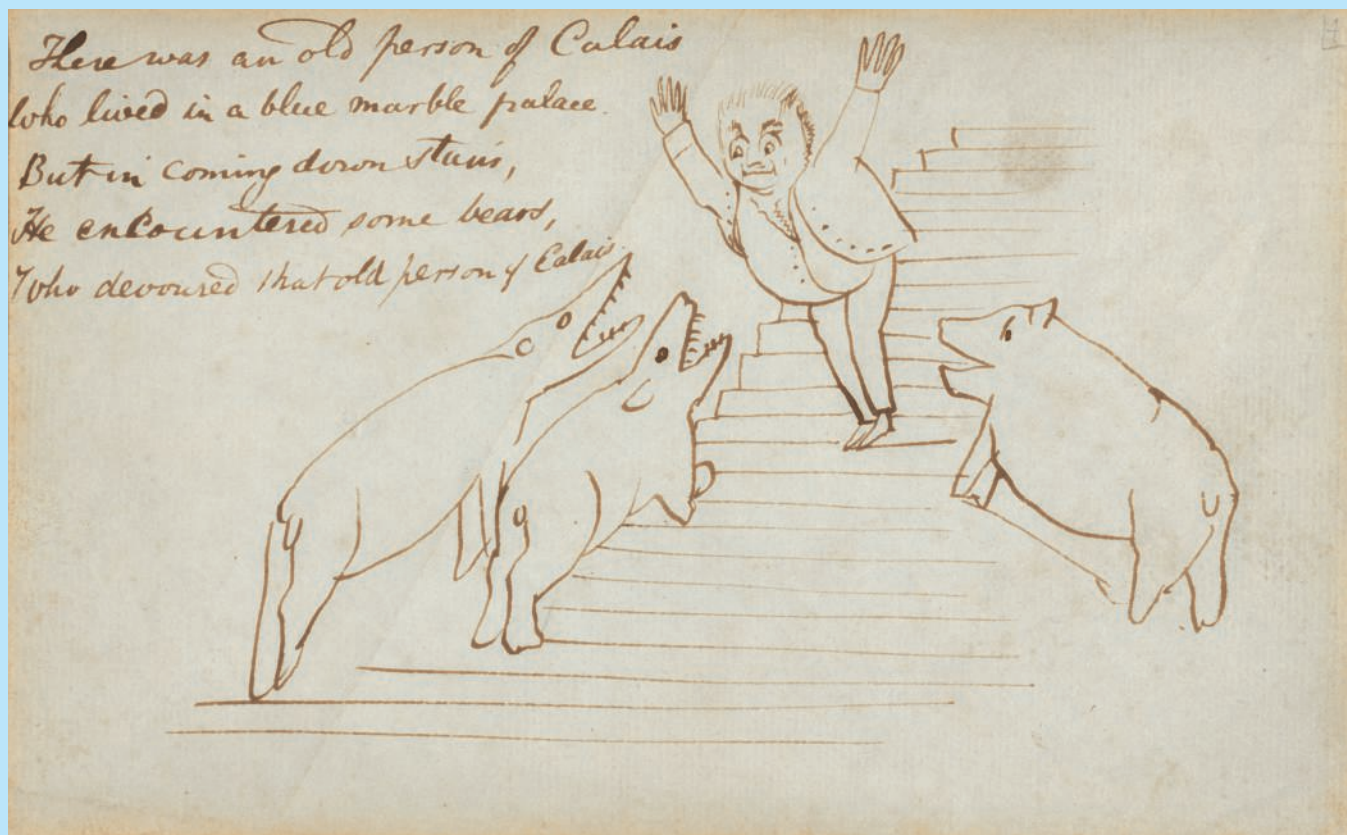 There was an old person of Calais
who lived in a blue marble palace.
But in coming down stairs,
He encountered some bears,
Who devoured that old person of Calais